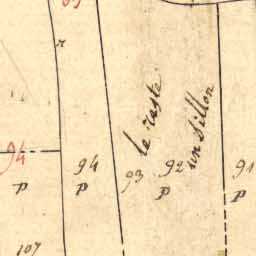 94
p
94
p
93
le reste
92
p
un sillon
91
p
107